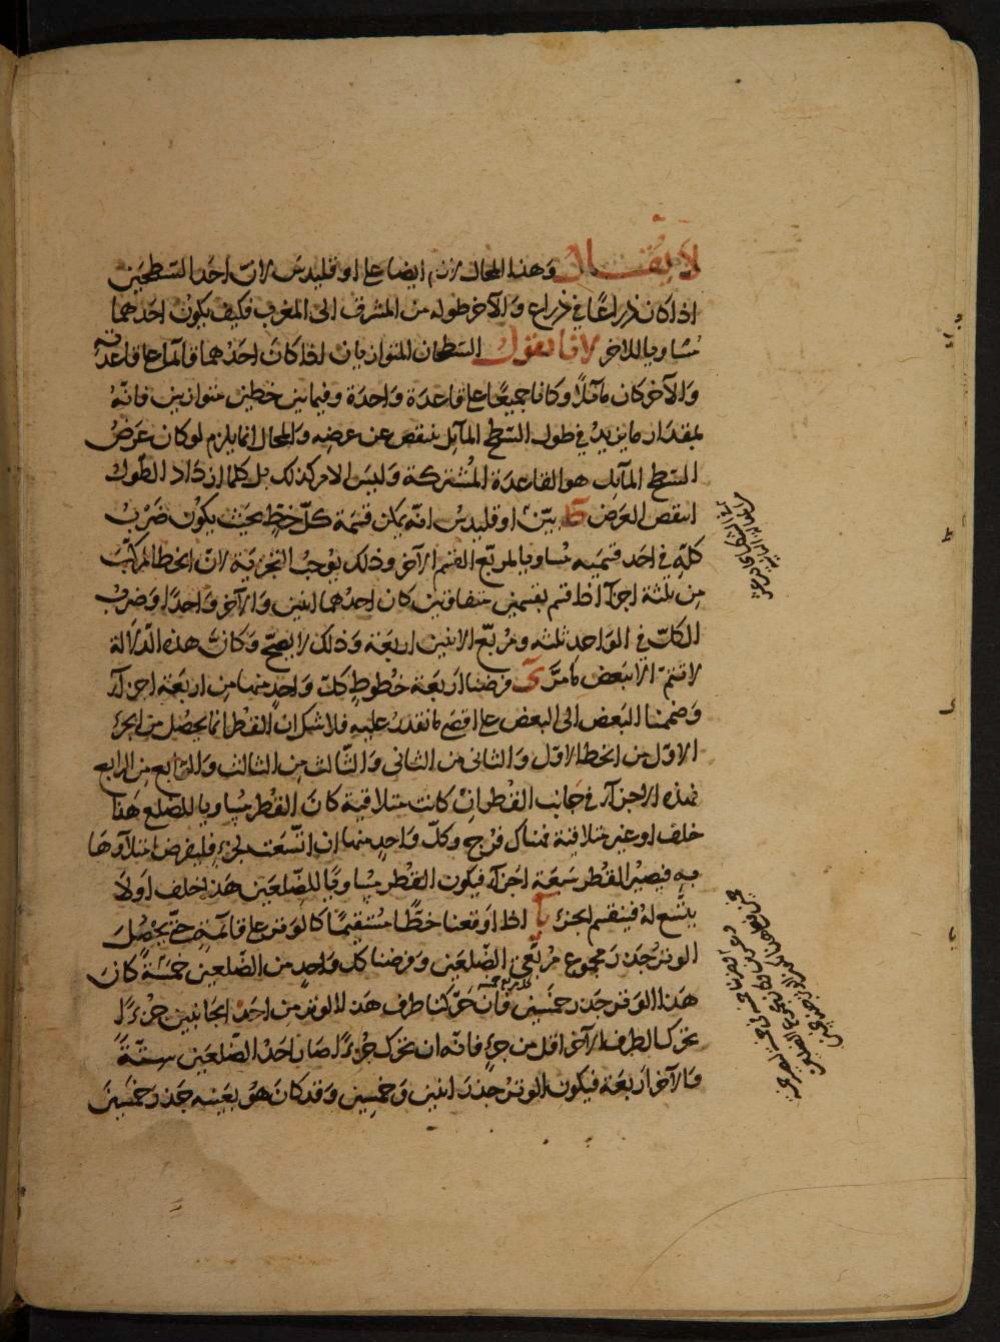 لا يقال وهذا المحال لازم ايضا على اوقليدس لان احد السطحين
اذا كان ذراعًا في ذراع والآخر طوله من المشرق الى المغرب فكيف يكون احدهما
مساويا للاخر لانا نقول السطحان المتوازيان اذا كان احدهما قائما على قاعدته
والآخر كان مائلًا وكانا جميعًا على قاعدة واحدة وفيما بين خطين متوازيين فانه
بمقدار ما يزيد في طول السطح المآيل ينقص عن عرضه والمحال انما يلزم لو كان عرض
السطح المآيل هو القاعدة المشتركة وليس الامر كذلك بل كلما ازداد الطول
انتقص العرض ط بيّن اوقليدس انه يمكن قسمة كلّ خط بحيث يكون ضرب
كلّه في احد قسميه مساويا لمربّع القسم الآخر وذلك يوجب التجزية لان الخط المركّب
من ثلثة اجزآ اذا قسم بقسمين متفاوتين كان احدهما اثنين والآخر واحدًا وضرب
الكلّ في الواحد ثلثه ومربّع الاثنين اربعة وذلك لا يصحّ وكانت هذه الدّلالة
لا تتمّ الا ببعض ما مرّ ى فرضنا اربعة خطوط كلّ واحد منها من اربعة اجزآ
وضممنا البعض الى البعض على اقصى ما نقدر عليه فلا شك ان القطر انما يحصل من الجزء
الاوّل من الخط الاوّل والثانى من الثانى والثّالث من الثالث والرّابع من الرابع
فهذه الاجزآ في جانب القطر ان كانت متلاقية كان القطر مساويا للضلع هذا
خلف او غير متلاقية فهناك فرج وكلّ واحد منها ان اتّسعت لجزء فليفرض امتلآوها
به فيصير القطر سبعة اجزآ فيكون القطر مساويًا للضّلعين هذا خلف او لا
يتّسع له فينقسم الجزء يا اذا اوقعنا خطًّا مستقيمًا كالوتر على قآئمة حتّى يحصل
الوتر جذر مجموع مربّعي الضّلعين وفرضنا كل واحد من الضّلعين خمسةً كان
هذا الوتر جذر خمسين فان حرّكنا طرف هذا الوتر من احد الجانبين جزءًا
تحرك الطرف الآخر اقل من جزء فانّه ان تحرك جزءًا صار احد الضّلعين ستّةً
والآخر اربعة فيكون الوتر جذر اثنين وخمسين وقد كان هو بعينه جذر خمسين